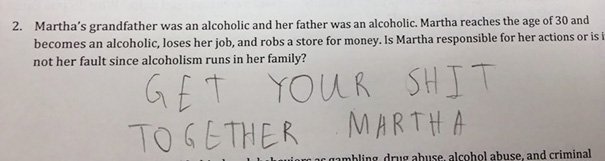 2. Martha's grandfather was an alcoholic and her father was an alcoholic. Martha reaches the age of 30 and
becomes an alcoholic, loses her job, and robs a store for money. Is Martha responsible for her actions or is i
not her fault since alcoholism runs in her family?
GET YOUR SHIT
TOGETHER MARTHA
gambling, drug abuse, alcohol abuse, and criminal